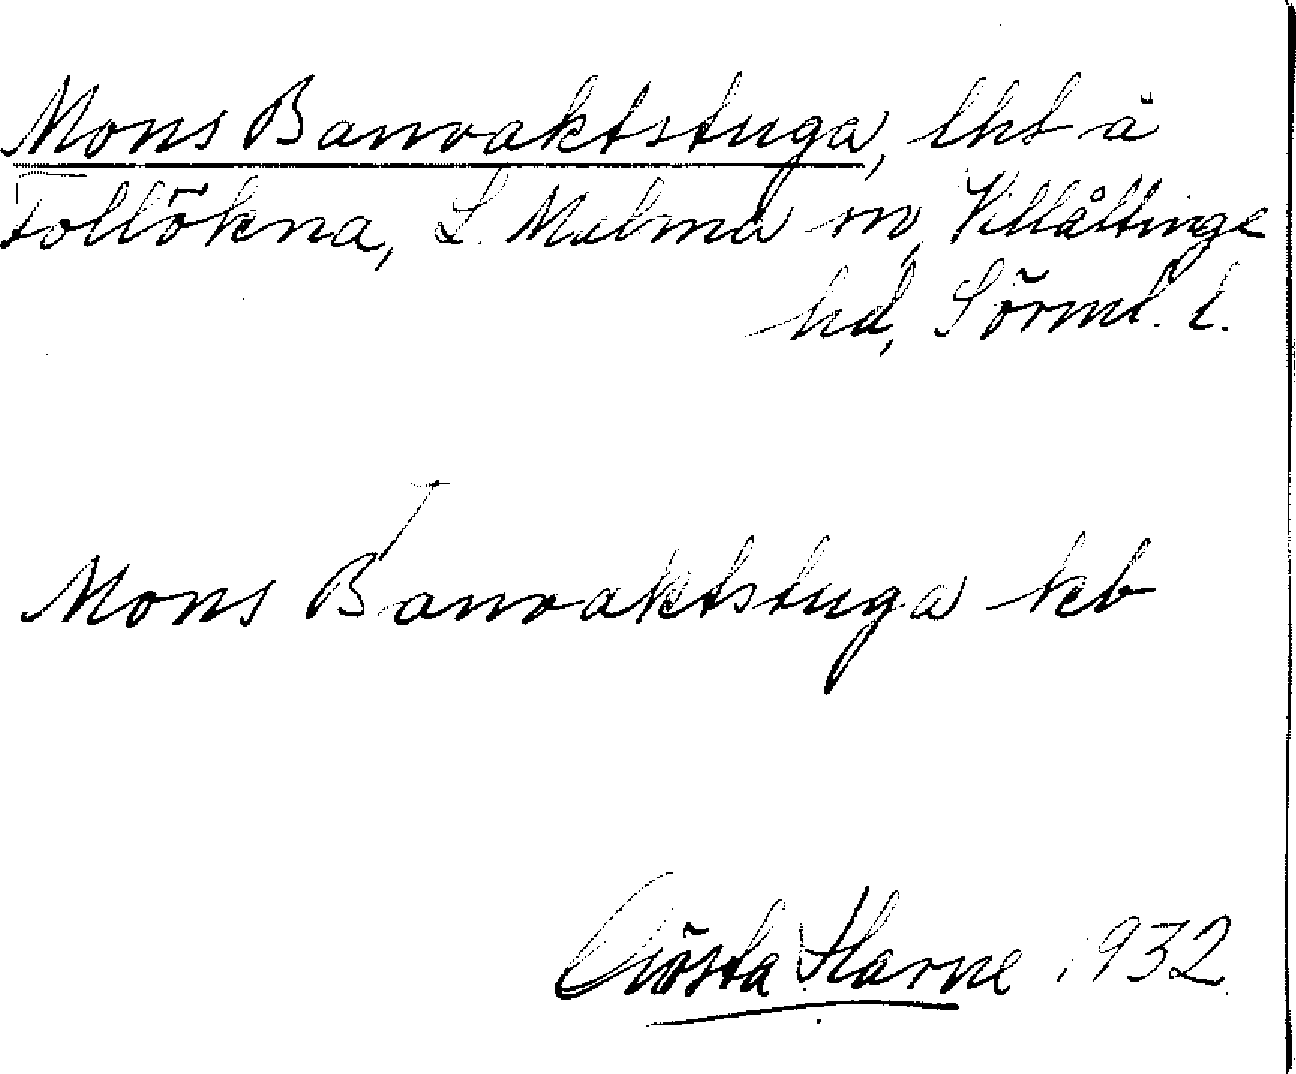 Mons Banvaktstuga, lht å
Tollökna, L. Malma sn, Villåttinge
hd, Sörml. l.
Mons Banvaktstuga kb
Gösta Harne 1932.